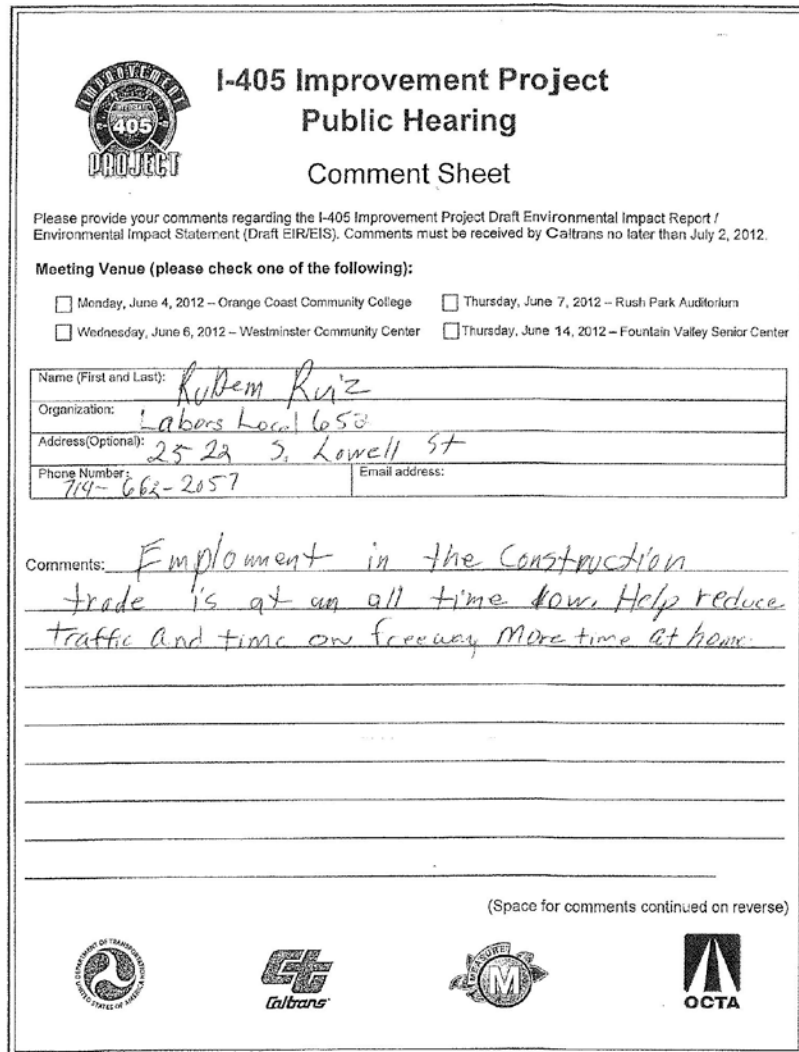 IMPROVEMENT
INTERSTATE
405
PROJECT
I-405 Improvement Project
Public Hearing
Comment Sheet
Please provide your comments regarding the I-405 Improvement Project Draft Environmental Impact Report /
Environmental Impact Statement (Draft EIR/EIS). Comments must be received by Caltrans no later than July 2, 2012.
Meeting Venue (please check one of the following):
Monday, June 4, 2012 – Orange Coast Community College
Thursday, June 7, 2012 – Rush Park Auditorium
Wednesday, June 6, 2012 – Westminster Community Center
Thursday, June 14, 2012 – Fountain Valley Senior Center
Name (First and Last): Ruiz
Organization: Labors Local
Address(Optional): 2522 S. Lowell St
Phone Number: 714-662-2057
Email address:
Comments: Emploment in the Construction
trade is at an all time low. Help reduce
traffic and time on freeway More time at home.
(Space for comments continued on reverse)
DEPARTMENT OF TRANSPORTATION
UNITED STATES OF AMERICA
Caltrans
MEASURE
M
OCTA